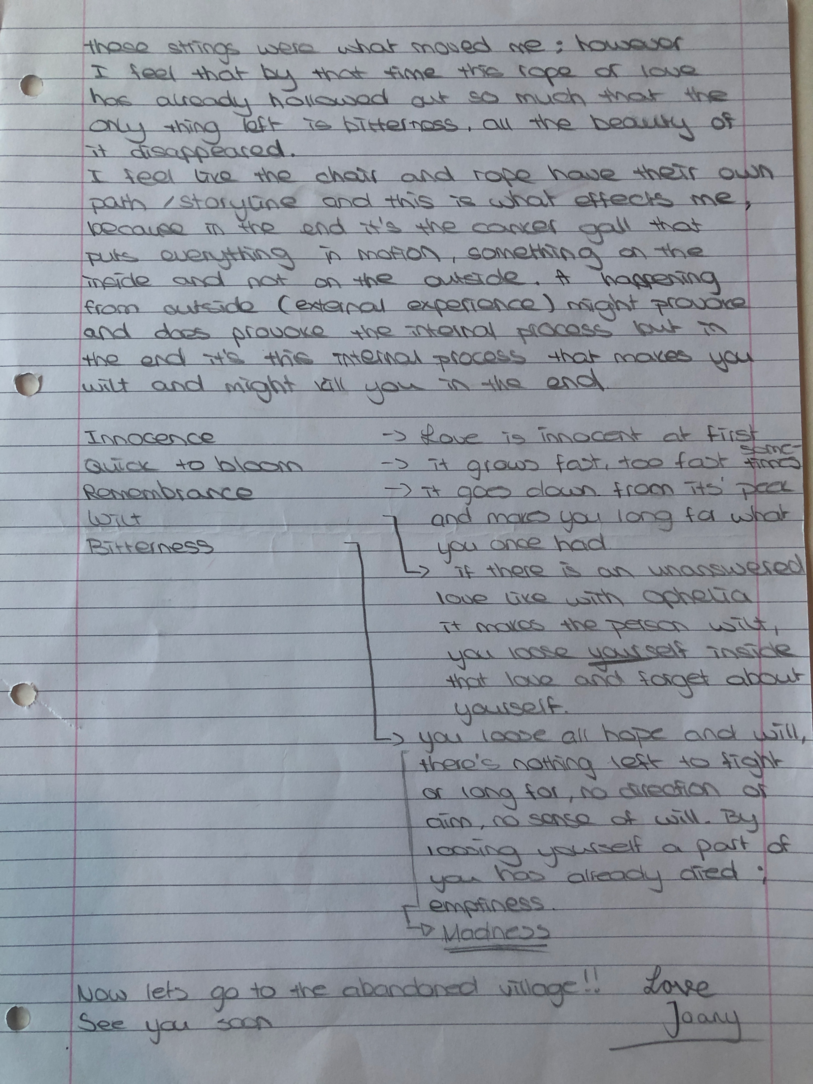 those strings were what moved me; however
I feel that by that time this rope of love
has already hollowed out so much that the
only thing left is bitterness, all the beauty of
it disappeared.
I feel like the chair and rope have their own
path / storyline and this is what effects me,
because in the end it's the canker gall that
puts everything in motion, something on the
inside and not on the outside. A happening
from outside (external experience) might provoke
and does provoke the internal process but in
the end it's this internal process that makes you
wilt and might kill you in the end.
Innocence -> Love is innocent at first
Quick to bloom -> it grows fast, too fast sometimes
Remembrance -> it goes down from its' peak
Wilt and makes you long for what
Bitterness you once had
if there is an unanswered
love like with Ophelia
it makes the person wilt,
you loose yourself inside
that love and forget about
yourself.
you loose all hope and will,
there's nothing left to fight
or long for, no direction or
aim, no sense of will. By
loosing yourself a part of
you has already died;
emptiness.
Madness
Now lets go to the abandoned village!! Love
See you soon Joany